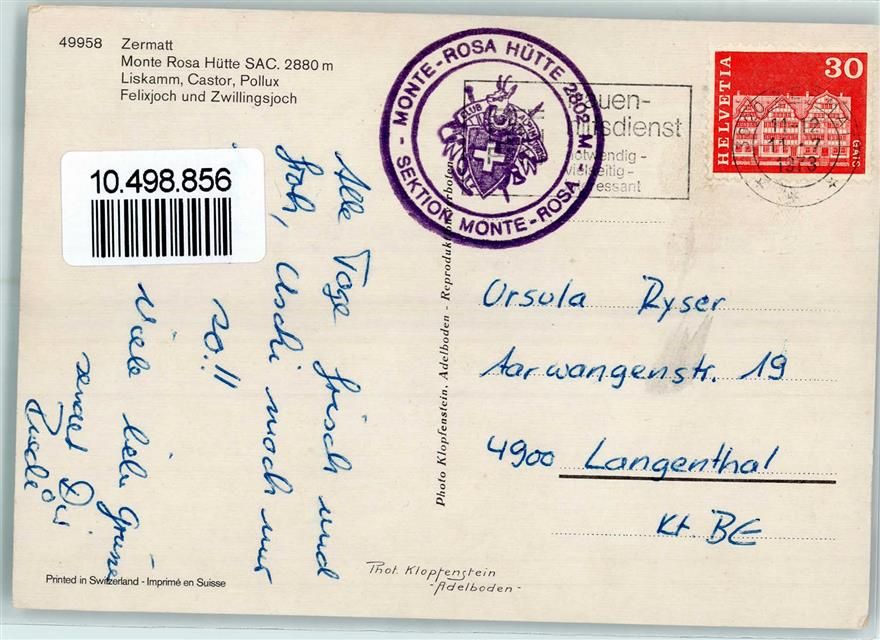 49958 Zermatt
Monte Rosa Hütte SAC. 2880 m
Liskamm, Castor, Pollux
Felixjoch und Zwillingsjoch
10.498.856
- MONTE-ROSA HÜTTE 2802 M -
SEKTION MONTE-ROSA
CLUB ALPIN
auen-
dienst
notwendig -
vielseitig -
ressant
HELVETIA 30
GAIS
11-12
1973
Alle Tage frisch und
froh, Uschi mach nur
so!!
Viele liebe Grüsse
sendet Dir
Ruedi
Photo Klopfenstein, Adelboden - Reproduktion verboten
Ursula Ryser
Aarwangenstr. 19
4900 Langenthal
Kt. BE
Phot. Klopfenstein
- Adelboden -
Printed in Switzerland - Imprimé en Suisse